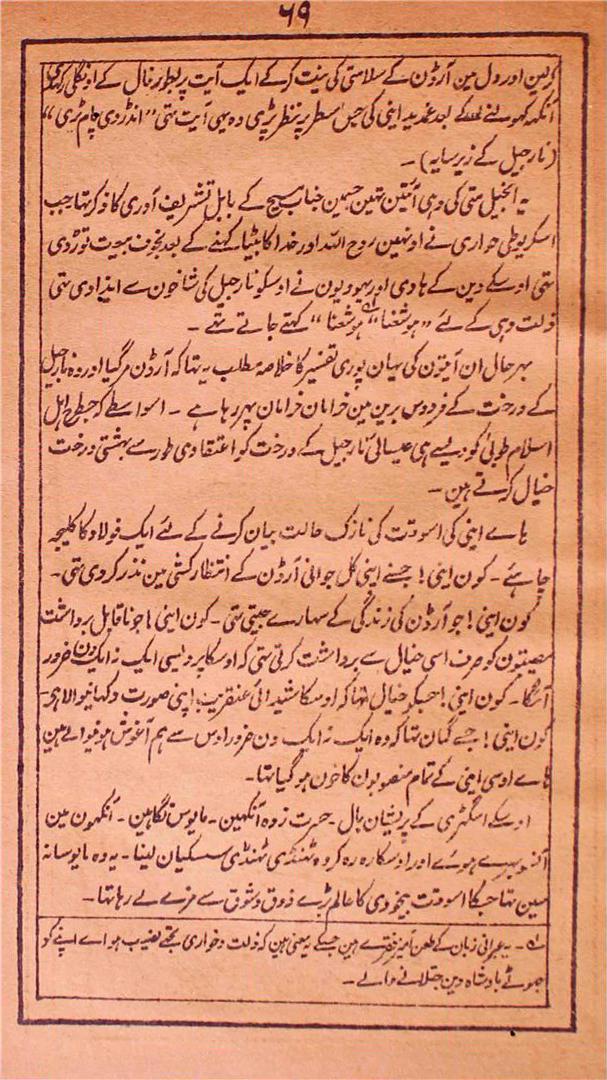 ۶۹
کرلین اور دل مین آرڈن کے سلامتی کی نیت کرکے ایک آیت پر بطور فال کے اونگلی رکہدی
آنکہہ کہولنے کے بعد غمدیدہ اینی کی جس سطر پر نظر پڑی وہ یہی آیت تہی "انڈر دی پام ٹری"
(نارجیل کے زیر سایہ) ۔
یہ انجیل متی کی وہی آئتین تہین جسمین جناب مسیح کے بابل تشریف آوری کا ذکر تہا جب
اسکریوطی حواری نے اونہین روح اللہ اور خدا کا بیٹا کہنے کے بعد بخوف بیعت توڑ دی
تہی اوسکے دین کے ہادی اور یہودیون نے اوسکو نارجیل کی شاخون سے ایذا دی تہی
ذلت دہی کے لئے "ہوشغنا" "ہوشغنا" کہتے جاتے تہے ۔
بہر حال ان آیتون کی یہان پوری تفسیر کا خلاصہ مطلب یہ تہا کہ آرڈن مرگیا اور وہ نارجیل
کے درخت کے فردوس برین مین خرامان خرامان پہر رہا ہے ۔ اسواسطے کہ جسطرح اہل
اسلام طوبیٰ کو ویسے ہی عیسائی نارجیل کے درخت کو اعتقادی طور سے بہشتی درخت
خیال کرتے ہین ۔
ہاے اینی کی اسوقت کی نازک حالت بیان کرنے کے لئے ایک فولاد کا کلیجہ
چاہئے ۔ کون اینی! جسنے اپنی کل جوانی آرڈن کے انتظار کشی مین نذر کردی تہی ۔
کون اینی! جو آرڈن کی زندگی کے سہارے جیتی تہی ۔ کون اینی! جو ناقابل برداشت
مصیبتون کو صرف اسی خیال سے برداشت کرتی تہی کہ اوسکا پردیسی ایک نہ ایک دن ضرور
آئیگا ۔ کون اینی! جسکو خیال تہا کہ اوسکا شیدائی عنقریب اپنی صورت دکہانیوالا ہی ۔
کون اینی! جسے گمان تہا کہ وہ ایک نہ ایک دن ضرور اوس سے ہم آغوش ہونیوالے ہین
ہاے اوسی اینی کے تمام منصوبون کا خون ہوگیا تہا ۔
اوسکے اسگتہری کے پریشان بال ۔ حسرت زدہ آنکہین ۔ مایوس نگاہین ۔ آنکہون مین
آنسو بہرے ہوئے اور اوسکا رہ رہ کر وہ ٹہنڈی ٹہنڈی سسکیان لینا ۔ یہ وہ مایوسانہ
سین تہا جسکا اسوقت بیخودی کا عالم بڑے ذوق و شوق سے مزے لے رہا تہا ۔
لہ ۔ یہ عبرانی زبان کے طعن آمیز فقرے ہین جسکے یہ معنی ہین کہ ذلت و خواری تجہے نصیب ہو اے اپنے کو
جہوٹے بادشاہ دین جتلانے والے ۔